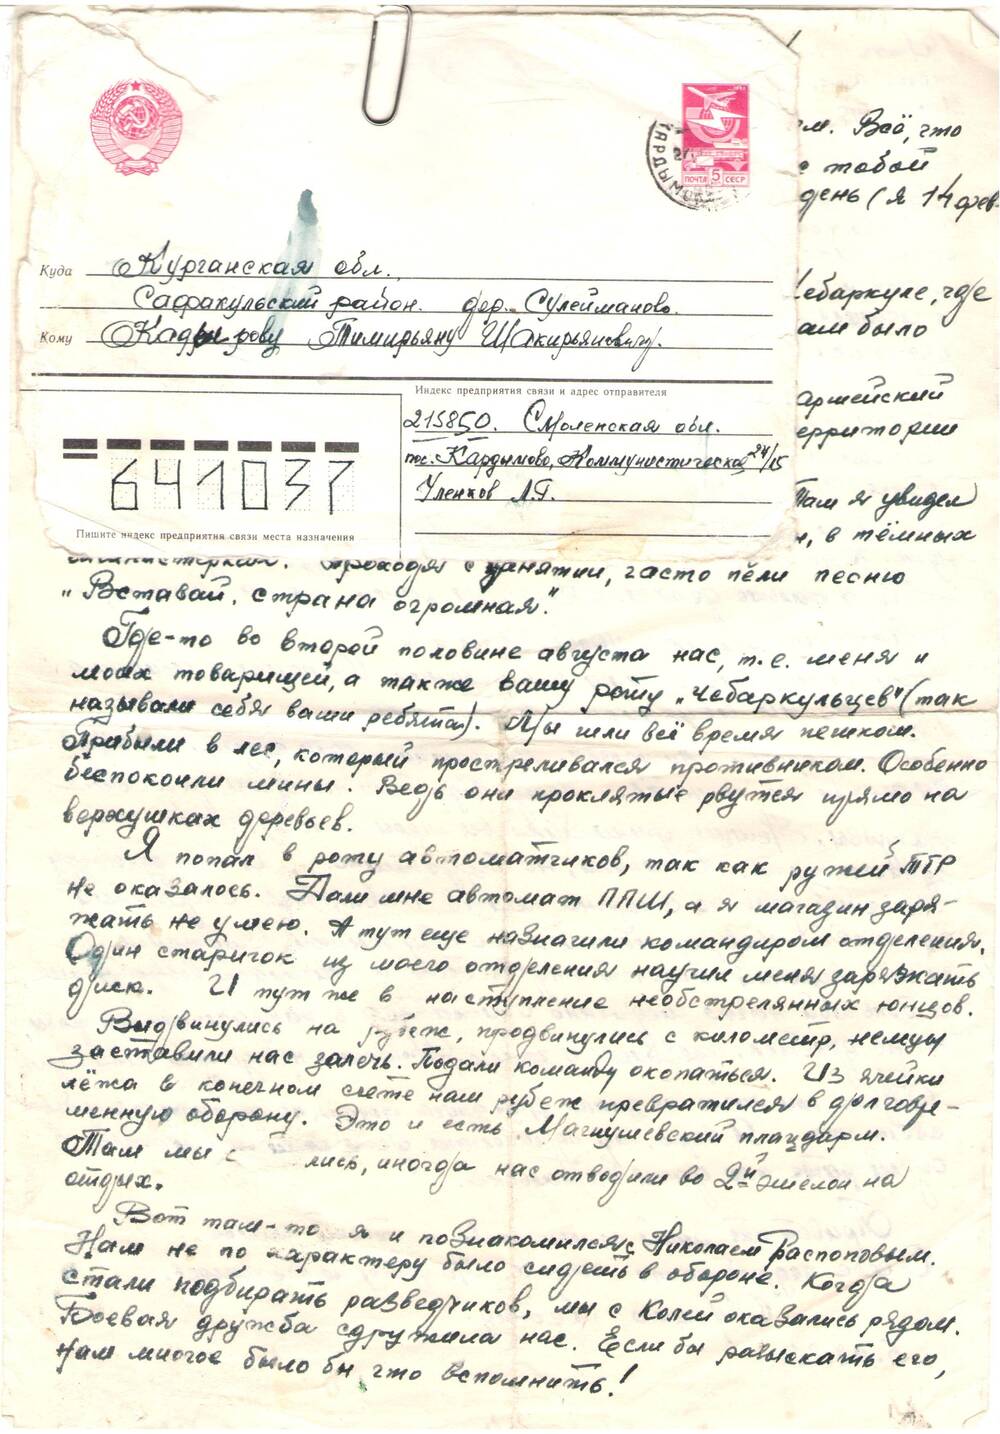 ПОЧТА 5 СССР
Куда Курганская обл.
Сафакульский район. дер. Сулейманово.
Кому Кадырову Тимирьяну Шакирьяновичу.
Индекс предприятия связи и адрес отправителя
215850. Смоленская обл.
пос. Кардымово, Коммунистическая 24/15
Уленков Л.Г.
641037
Пишите индекс предприятия связи места назначения
Всё, что
с тобой
день (я 14 фев-
Чебаркуле, где
там было
армейский
территории
Там я увидел
в тёмных
Проходя с занятий, часто пели песню
„Вставай, страна огромная".
Где-то во второй половине августа нас, т.е. меня и
моих товарищей, а также вашу роту „Чебаркульцев" (так
называли себя ваши ребята). Мы шли всё время пешком.
Прибыли в лес, который простреливался противником. Особенно
беспокоили мины. Ведь они проклятые рвутся прямо на
верхушках деревьев.
Я попал в роту автоматчиков, так как ружей ПТР
не оказалось. Дали мне автомат ППШ, а я магазин заря-
жать не умею. А тут еще назначили командиром отделения.
Один старичок из моего отделения научил меня заряжать
диск. И тут же в наступление необстрелянных юнцов.
Выдвинулись на рубеж, продвинулись с километр, немцы
заставили нас залечь. Подали команду окопаться. Из ячейки
лёжа в конечном счете наш рубеж превратился в долговре-
менную оборону. Это и есть Магнушевский плацдарм.
Там мы лись, иногда нас отводили во 2й эшелон на
отдых.
Вот там-то я и познакомился с Николаем Распоповым.
Нам не по характеру было сидеть в обороне. Когда
стали подбирать разведчиков, мы с Колей оказались рядом.
Боевая дружба сдружила нас. Если бы разыскать его,
нам многое было бы что вспомнить!